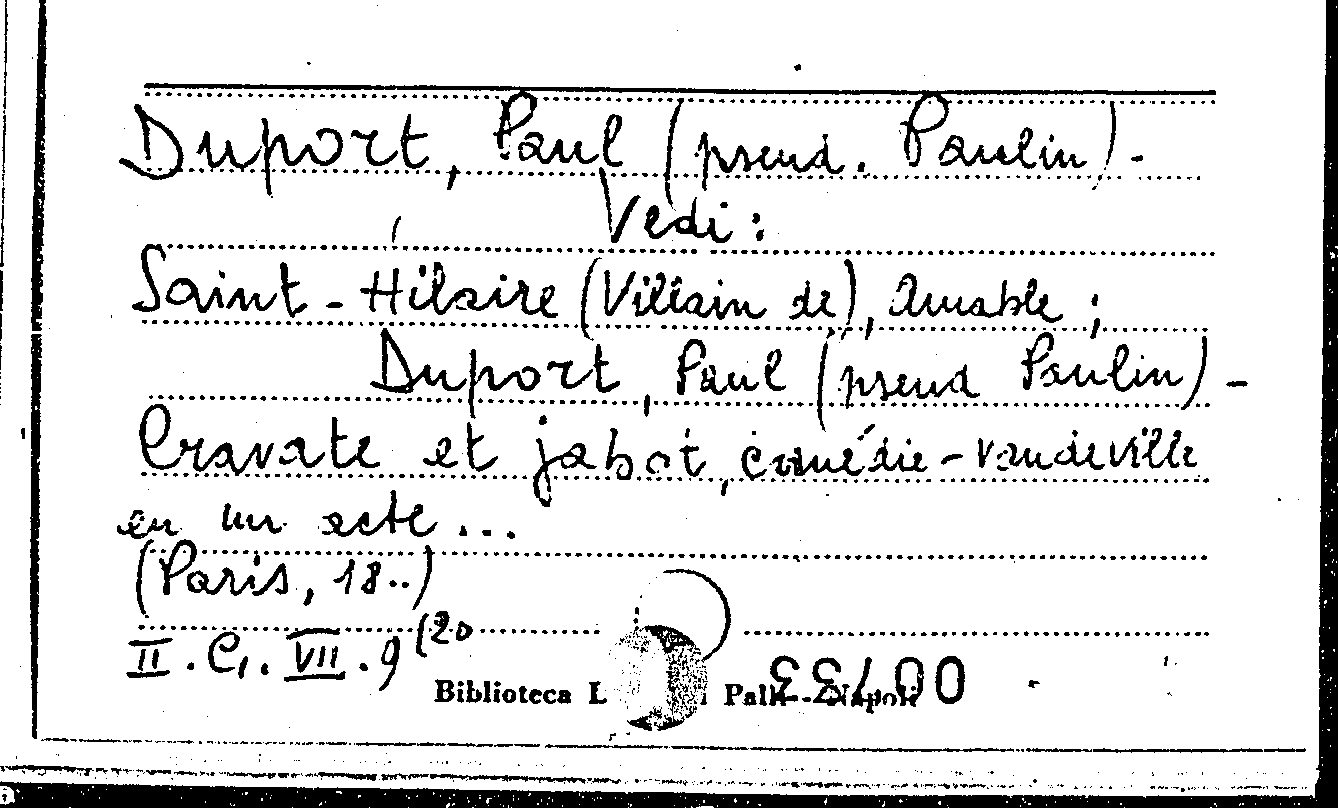 Duport, Paul (pseud. Paulin) -
Vedi:
Saint-Hilaire (Villain de), Amable;
Duport, Paul (pseud Paulin) -
Cravate et jabot, comédie-vaudeville
en un acte...
(Paris, 18..)
II. C. VII. 9 (20
Biblioteca L Palli - Napoli